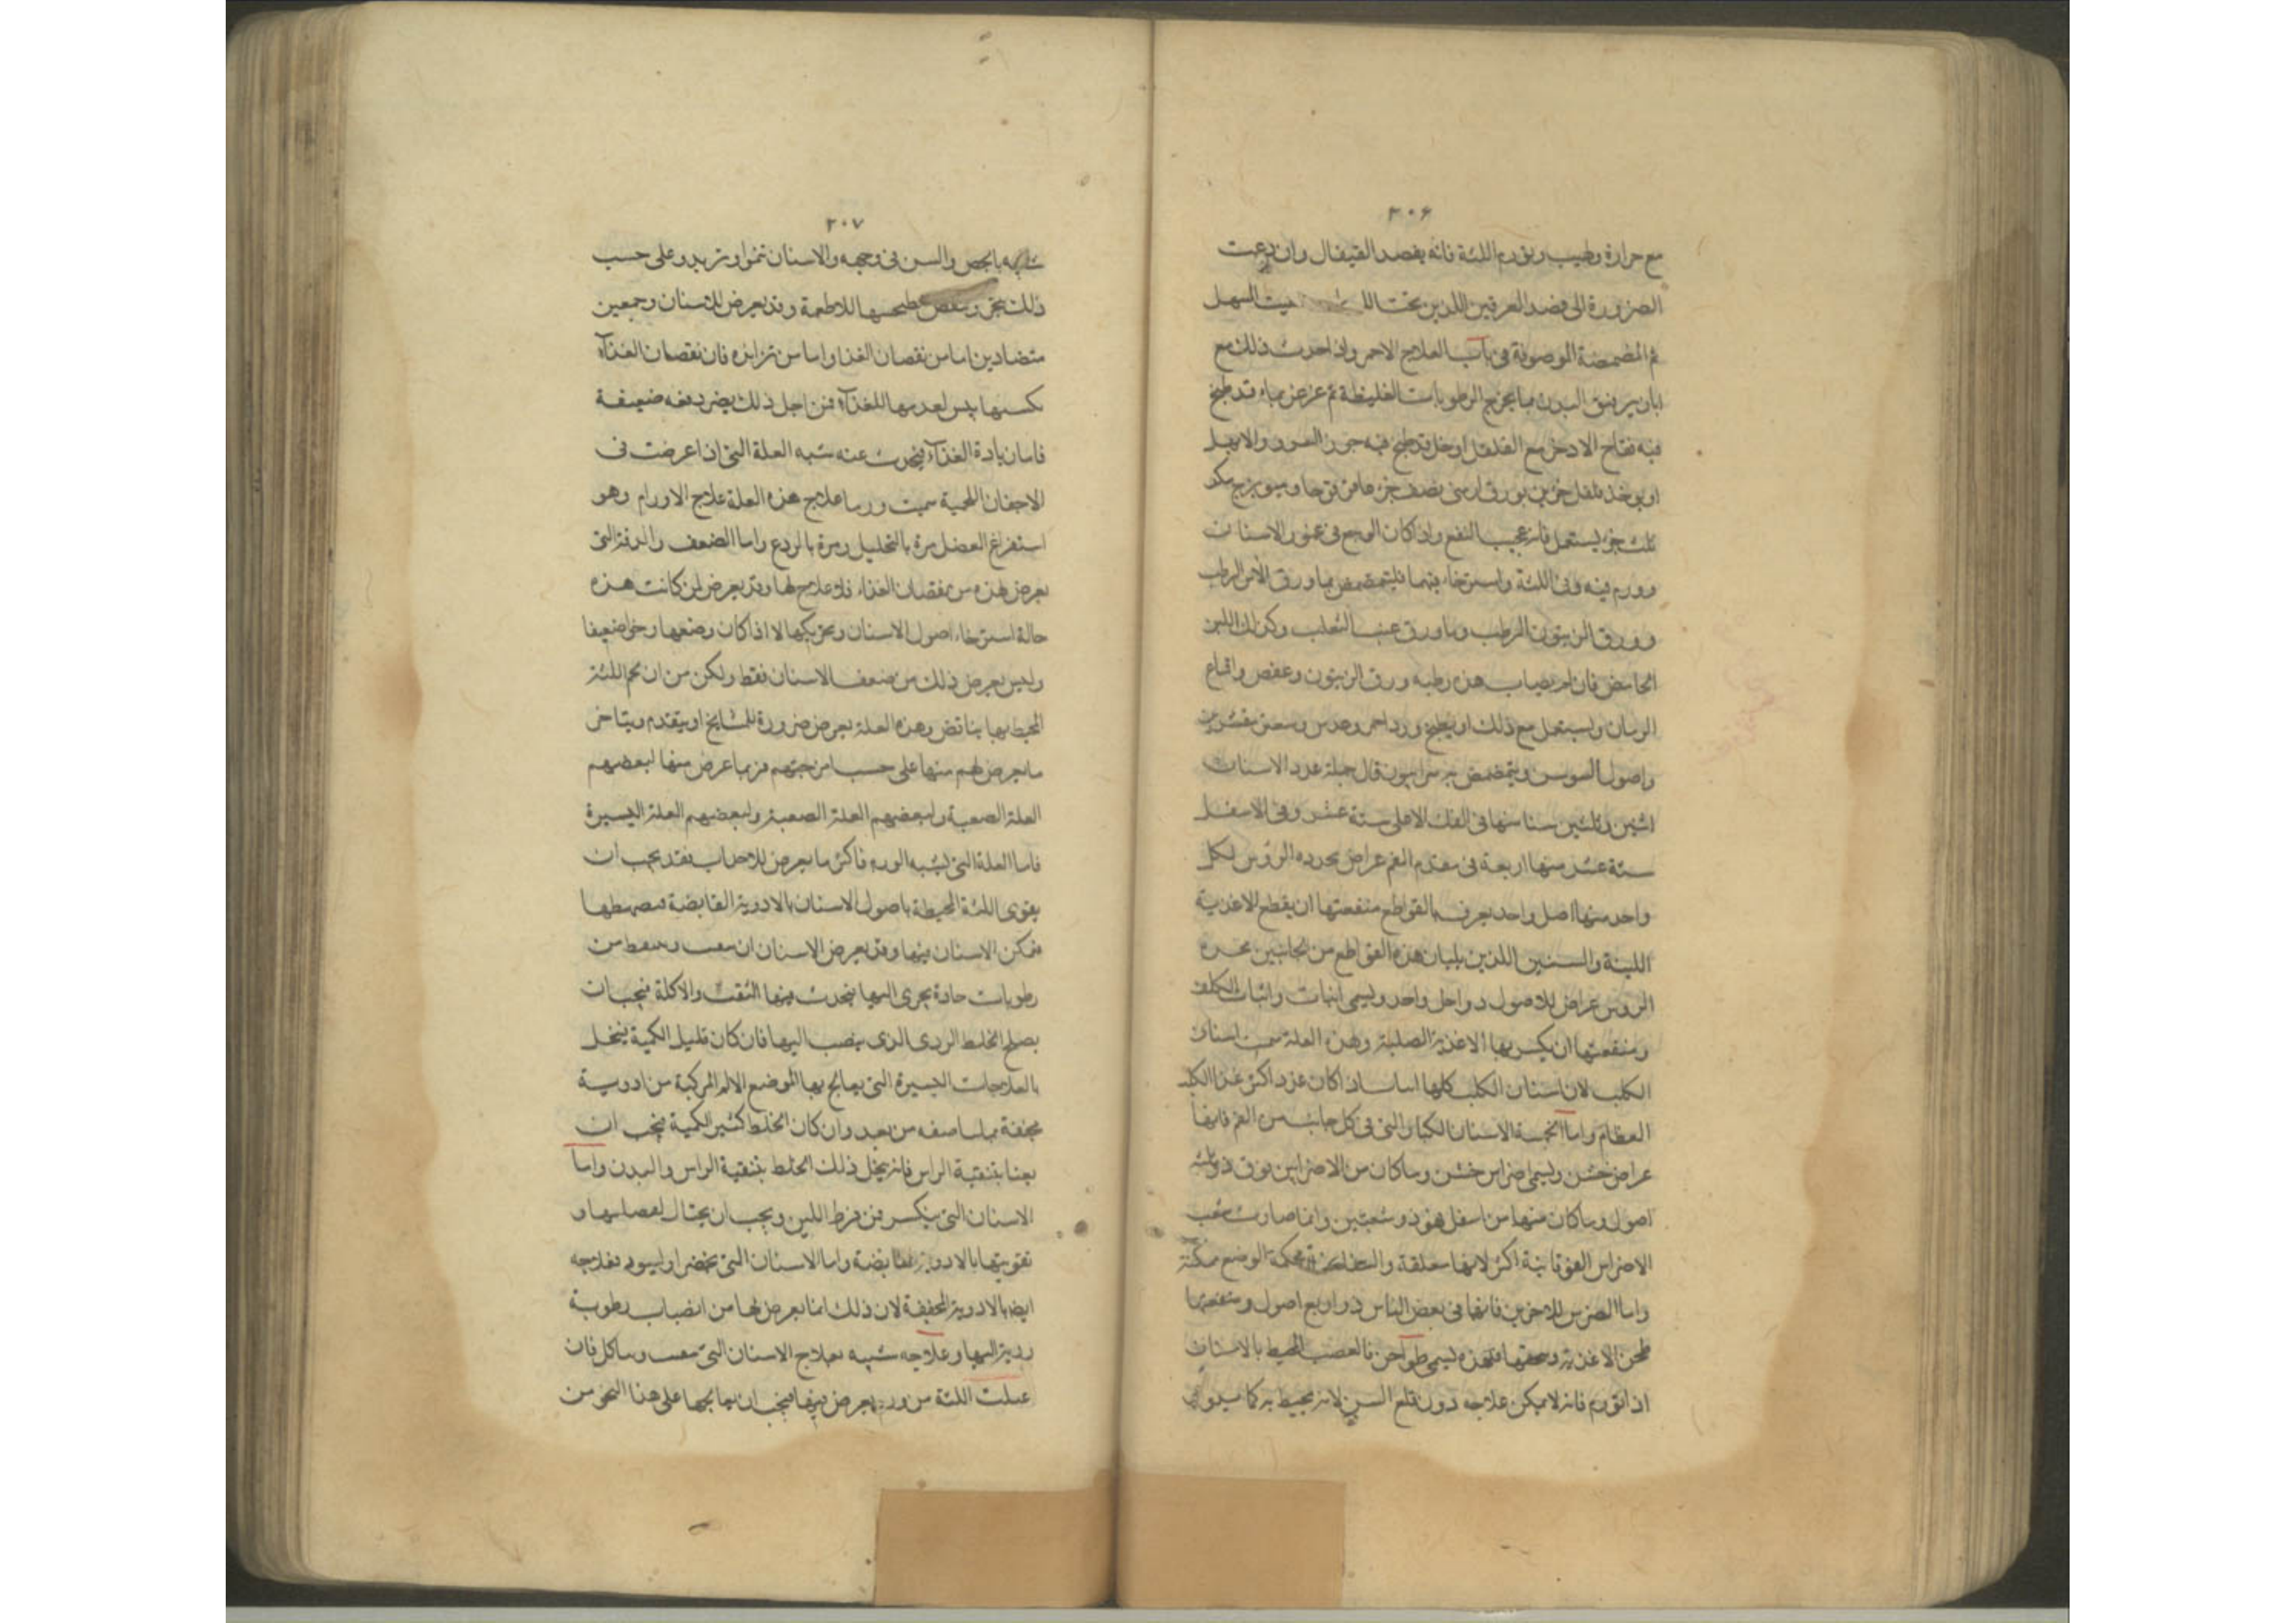 ٣٠۶
مع حرارة ولهيب وتورم اللثة فانه يفصد القيفال وان دعت
الضرورة الى فصد العرقين اللذين تحت
ثم المضمضة الموصوفة في باب العلاج الاحمر واذا حدث ذلك مع
البدن بما يخرج الرطوبات الغليظة ثم غرغر بماء قد طبخ
فيه فقاح الاذخر مع الفلفل او خل قد طبخ فيه جوز السرو والابهل
او يوخذ فلفل جزء بورق ارمني نصف جزء عاقرقرحا وميويزج
ثلث جزء يستعمل فانه عجيب النفع واذا كان الوجع في عمور الاسنان
وورم فيه وفي اللثة واسترخاء فيهما فليتمضمض بماورق الآس الرطب
وورق الزيتون الرطب وماورق عنب الثعلب وكذلك اللبن
الحامض فان لم يصاب هذه رطبه ورق الزيتون وعفص واقماع
الرمان ويستعمل مع ذلك او يطبخ ورد احمر وعدس
واصول السوسن ويتمضمض به سرابيون قال جملة عدد الاسنان
اثنين وثلثين سنا منها في الفك الاعلى ستة عشر وفي الاسفل
ستة عشر منها اربعة في مقدم الفم عراض محدده الروس لكل
واحد منها اصل واحد يعرف بالقواطع منفعتها ان يقطع الاغذية
اللينة والسنين اللذين يليان هذه القواطع من الجانبين محدده
الروس عراض الاصول دو اصل واحد ويسمى انياب وانياب الكلب
ومنفعتها ان يكسر بها الاغذية الصلبة وهذه العلة سميت اسنان
الكلب لان اسنان الكلب كلها
العظام واما الخمسة الاسنان الكبار التي في كل جانب من الفم فانها
عراض خشن ويسمى اضراس خشن وما كان من الاضراس فوق ذو ثلثة
اصول وما كان منها من اسفل فهو ذو شعبتين وانما صارت شعب
الاضراس الفوقانية اكثر لانها معلقة والسفلانية محكمة الوضع ممكنة
واما الضرس للاخرين فانها في بعض الناس ذو اربع اصول ومنفعتها
طحن الاغذية وسحقها فهذه يسمى طواحن فالعصب المحيط بالاسنان
اذا تورم فانه لا يمكن علاجه دون قلع السن لانه محيط به كما يدور
٣٠٧
بالجص والسن في وجهه والاسنان تنموا وتزيد وعلى حسب
ذلك للاطعمة وقد يعرض للاسنان وجعين
متضادين اما من نقصان الغذا واما من تزايده فان نقصان الغذآء
يكسبها يبس لعدمها للغذآء فمن اجل ذلك ضعيفة
فاما زيادة الغذآء فيحدث عنه شبه العلة التي اذا عرضت في
الاجفان اللحمية سميت ورما علاج هذه العلة علاج الاورام وهو
استفراغ الفضل مرة بالتحليل ومرة بالردع واما الضعف والدقة التي
يعرض لهذه من نقصان الغذاء فلا علاج لها وقد يعرض لمن كانت هذه
حالة استرخاء اصول الاسنان وتحريكها لا اذا كان وضعها رخوا ضعيفا
وليس يعرض ذلك من ضعف الاسنان فقط ولكن من ان لحم اللثة
المحيط بها يناقص وهذه العلة يعرض ضرورة للمشايخ او يتقدم ويتاخر
ما يعرض لهم منها على حسب امزجتهم فربما عرض منها لبعضهم
العلة الصعبة ولبعضهم العلة الصعبة ولبعضهم العلة اليسيرة
فاما العلة التي يشبه الورم فاكثر ما يعرض للاحداث فقد يجب ان
يقوى اللثة المحيطة باصول الاسنان بالادوية القابضة
فتمكن الاسنان فيها وقد يعرض الاسنان ان من
رطوبات حادة يجرى اليها فيحدث فيها الثقب والاكلة فيجب ان
يصلح الخلط الردى الذى ينصب اليها فان كان قليل الكمية
بالعلاجات اليسيرة التي يعالج بها الموضع الالم المركبة من ادوية
مجففة بما سنصفه من بعد وان كان الخلط كثير الكمية فيجب ان
يعنا بتنقية الراس فانه ذلك الخلط بتنقية الراس والبدن واما
الاسنان التي ينكسر فمن فرط اللين ويجب ان يحتال
تقويتها بالادوية القابضة واما الاسنان التي تخضر او يسود فعلاجه
ايضا بالادوية المجففة لان ذلك انما يعرض لها من انصباب رطوبة
ردية اليها وعلاجه شبيه بعلاج الاسنان التي فان
عملت اللثة من ورم يعرض فيها فيجب ان يعالجها على هذا النحو من